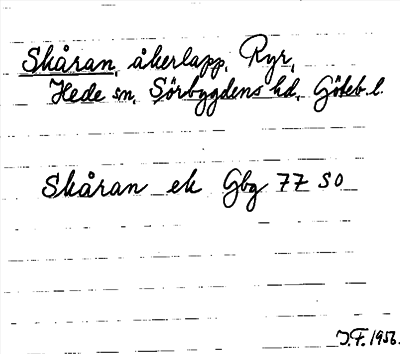 Skåran, åkerlapp, Ryr,
Hede sn, Sörbygdens hd, Göteb. l.
Skåran ek Gbg 77 SO
J.F. 1956.